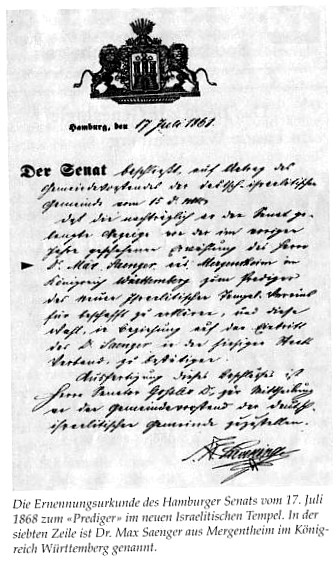 Hamburg, den 17 Juli 1868.
Der Senat beschließt, auf Antrag des
Gemeindevorstandes der deutsch-israelitischen
Gemeinde vom 15 d. Mts
daß die nachträglich an den Senat ge-
langte Anzeige von der im vorigen
Jahre geschehenen Erwählung des Herrn
Dr. Max Saenger aus Mergentheim im
Königreich Württemberg zum Prediger
des neuen Israelitischen Tempel-Vereins
für beschafft zu erklären, und diese
Wahl, in Beziehung auf den Eintritt
des Dr. Saenger in den hiesigen
Verband, zu bestätigen.
Ausfertigung dieses Beschlusses ist
Herrn Senator Goßler Dr. zur Mittheilung
an den Gemeindevorstand der deutsch-
israelitischen Gemeinde zuzustellen.
Die Ernennungsurkunde des Hamburger Senats vom 17. Juli
1868 zum «Prediger» im neuen Israelitischen Tempel. In der
siebten Zeile ist Dr. Max Saenger aus Mergentheim im König-
reich Württemberg genannt.